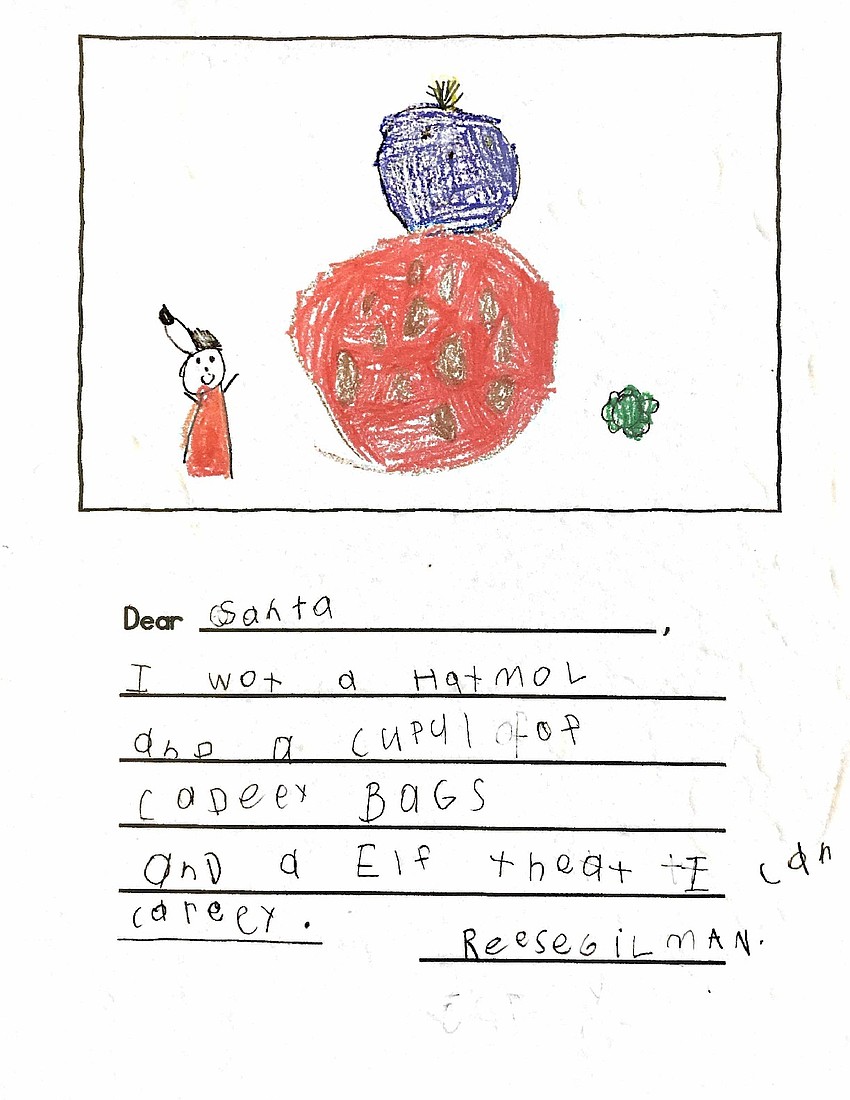 Dear Santa,
I wot a HatmOL
anD a cupul of of
caDeey BAGS
anD a Elf theat I can
careey.
ReeseGiLmAN.